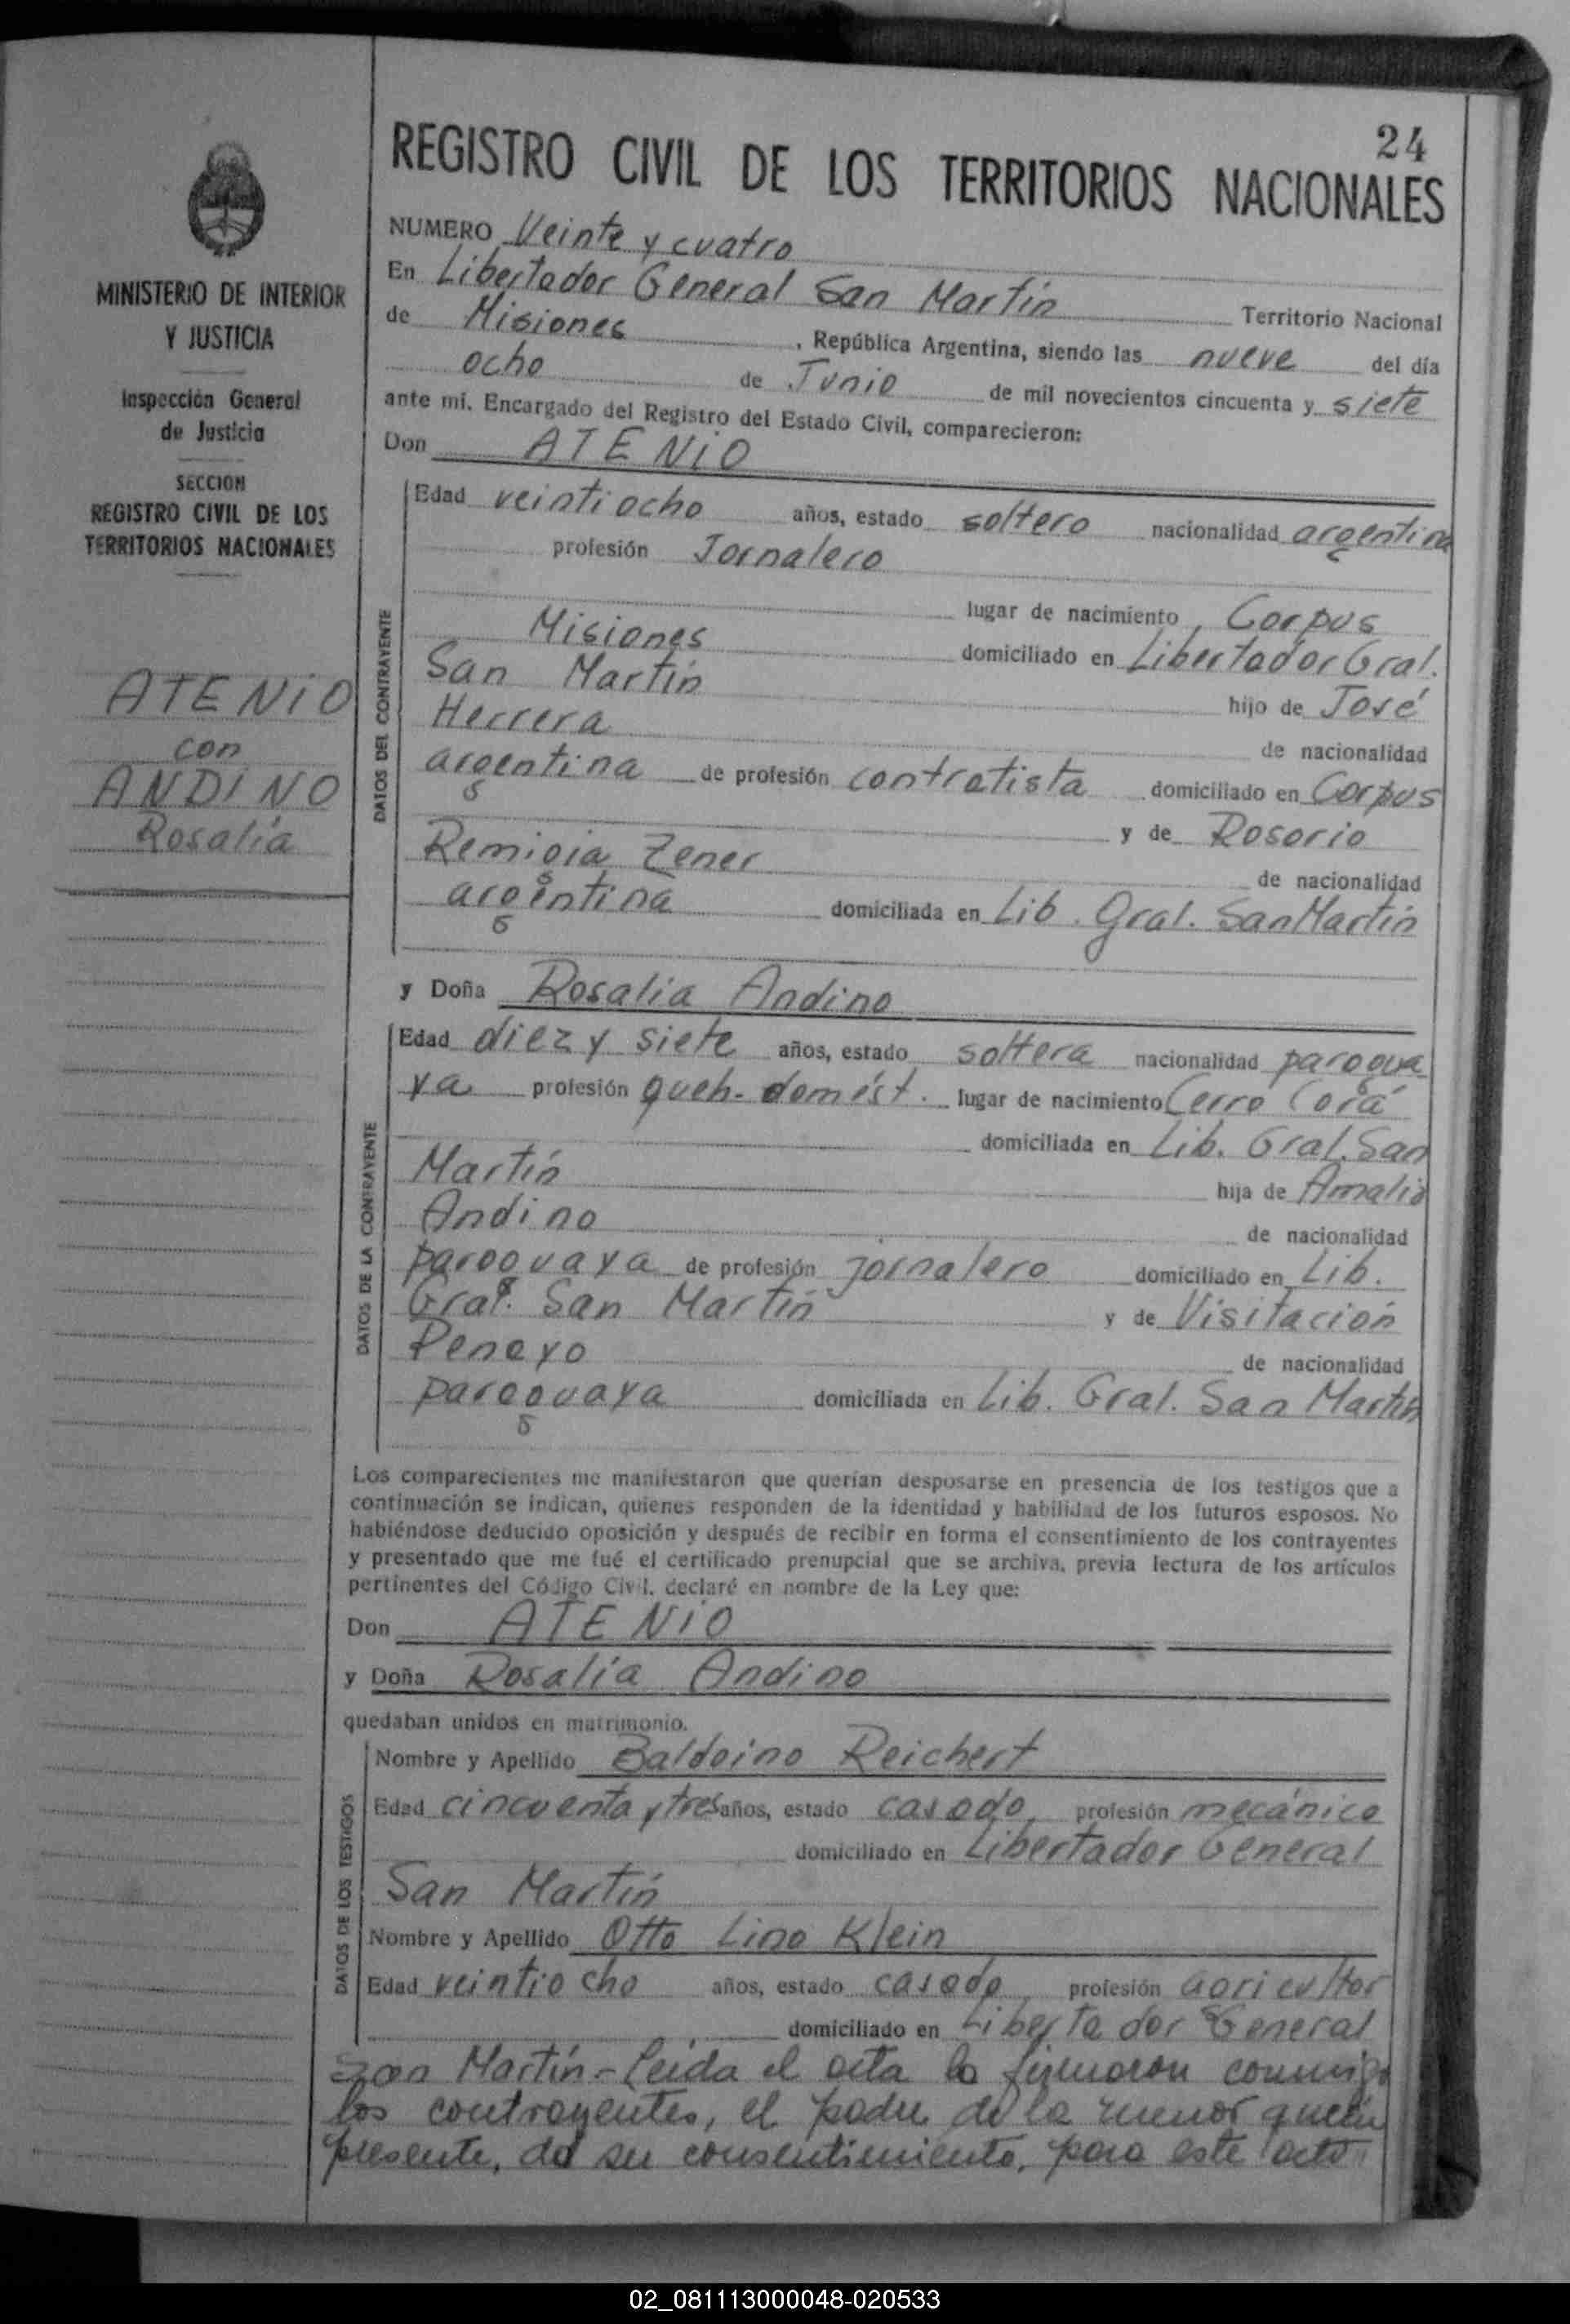 24
REGISTRO CIVIL DE LOS TERRITORIOS NACIONALES
MINISTERIO DE INTERIOR
Y JUSTICIA
Inspección General
de Justicia
SECCION
REGISTRO CIVIL DE LOS
TERRITORIOS NACIONALES
ATENIO
con
ANDINO
Rosalía
NUMERO Veinte y cuatro
En Libertador General San Martín Territorio Nacional
de Misiones, República Argentina, siendo las nueve del día
ocho de Junio de mil novecientos cincuenta y siete
ante mí, Encargado del Registro del Estado Civil, comparecieron:
Don ATENIO
DATOS DEL CONTRAYENTE
Edad veintiocho años, estado soltero nacionalidad argentina
profesión Jornalero
lugar de nacimiento, Corpus
Misiones domiciliado en Libertador Gral.
San Martín hijo de José
Herrera de nacionalidad
argentina de profesión contratista domiciliado en Corpus
y de Rosario
Remigia Zener de nacionalidad
argentina domiciliada en Lib. Gral. San Martín
y Doña Rosalia Andino
DATOS DE LA CONTRAYENTE
Edad diez y siete años, estado soltera nacionalidad paragua
ya profesión queh. domést. lugar de nacimiento Cerro Corá
domiciliada en Lib. Gral. San
Martín hija de Amalio
Andino de nacionalidad
paraguaya de profesión jornalero domiciliado en Lib.
Gral. San Martín y de Visitación
Penayo de nacionalidad
paraguaya domiciliada en Lib. Gral. San Martín
Los comparecientes me manifestaron que querían desposarse en presencia de los testigos que a
continuación se indican, quienes responden de la identidad y habilidad de los futuros esposos. No
habiéndose deducido oposición y después de recibir en forma el consentimiento de los contrayentes
y presentado que me fué el certificado prenupcial que se archiva, previa lectura de los artículos
pertinentes del Código Civil, declaré en nombre de la Ley que:
Don ATENIO
y Doña Rosalía Andino
quedaban unidos en matrimonio.
DATOS DE LOS TESTIGOS
Nombre y Apellido Baldoino Reichert
Edad cincuenta y tres años, estado casado, profesión mecánico
domiciliado en Libertador General
San Martín
Nombre y Apellido Otto Lino Klein
Edad veintiocho años, estado casado, profesión agricultor
domiciliado en Libertador General
San Martín - Leída el acta la firmaron conmigo
los contrayentes, el padre de la menor quién
presente, da su consentimiento, para este acto
02_081113000048-020533